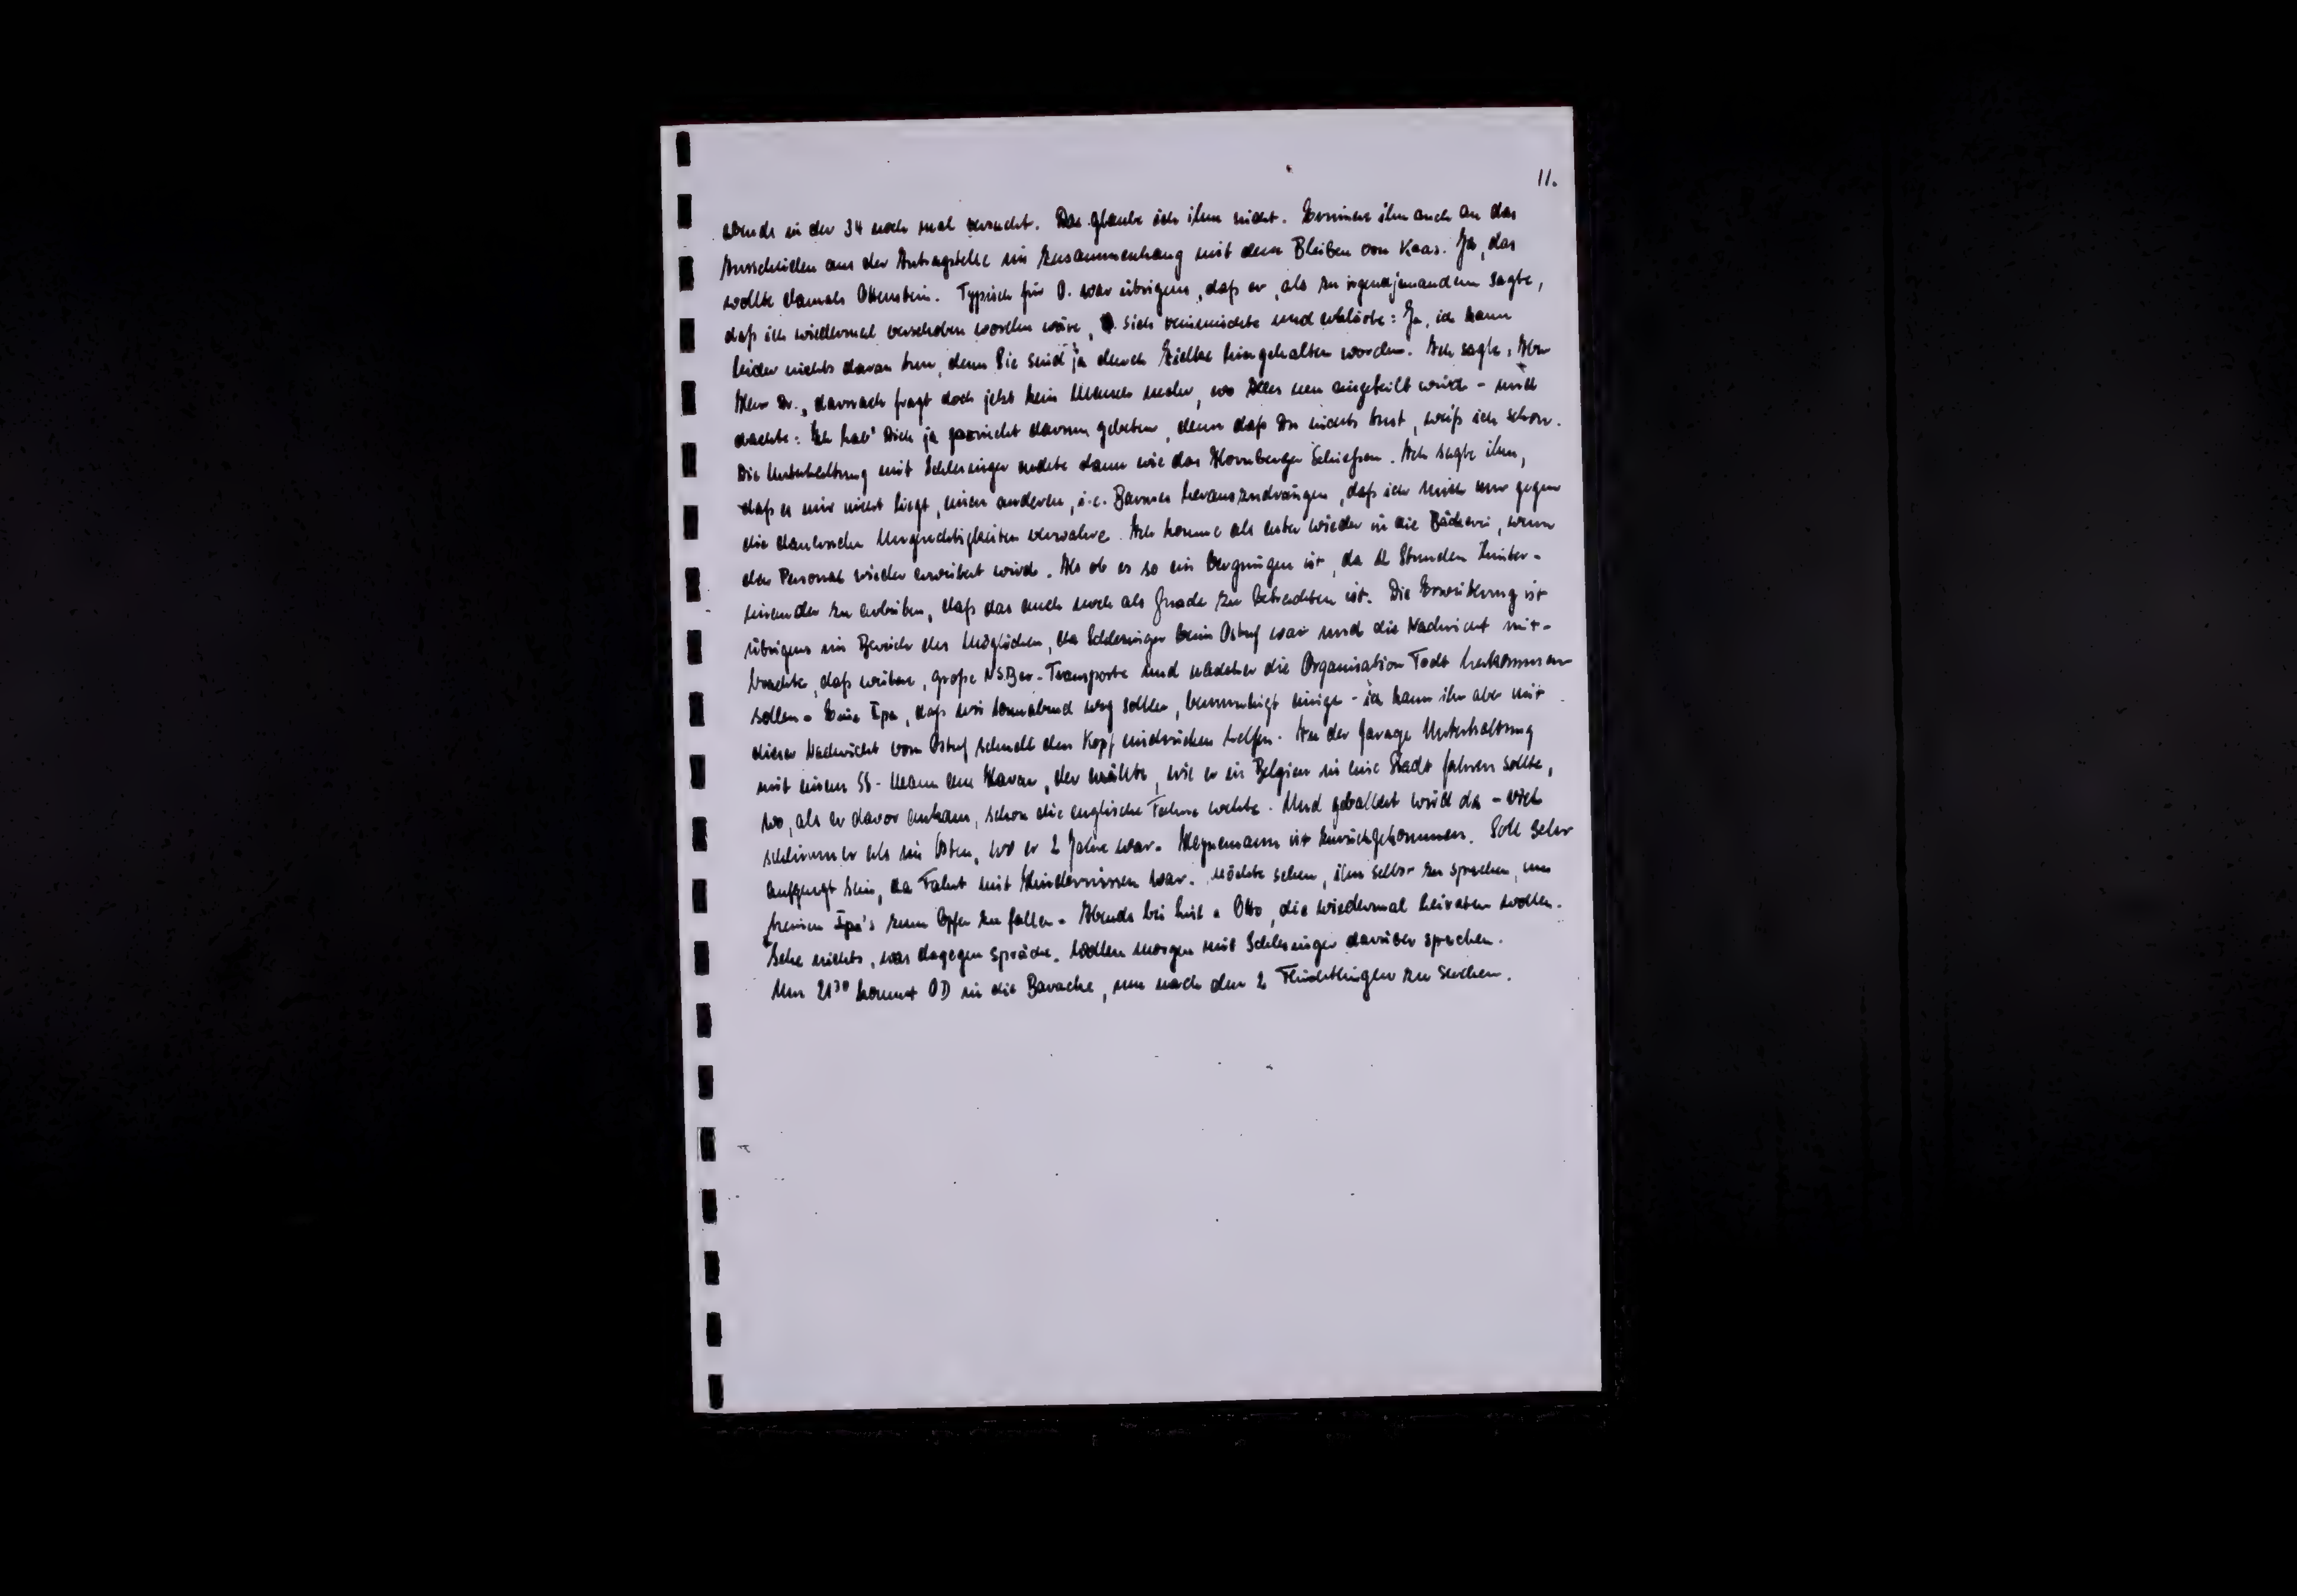 11.
abends in der 34 noch mal versucht. Das glaube ich ihm nicht. Erinnere ihn auch an das
Ausscheiden aus der Antragstelle im Zusammenhang mit dem Bleiben von Kaas. Ja, das
wollte damals Ottenstein. Typisch für O. war übrigens, daß er, als zu irgendjemandem sagte,
daß ich wiedermal verschoben worden wäre, sich einmischte und erklärte: Ja, ich kann
leider nichts daran tun, denn Sie sind ja durch Zielke hingehalten worden. Ich sagte: Aber
Herr Dr., darnach fragt doch jetzt kein Mensch mehr, wo Alles neu eingeteilt wird - und
dachte: Ich hab' Dich ja garnicht darum gebeten, denn daß Du nichts tust, weiß ich schon.
Die Unterhaltung mit Schlesinger endete dann wie das Hornberger Schießen. Ich sagte ihm,
daß es mir nicht liegt, einen anderen, i.e. Barmes herauszudrängen, daß ich mich nur gegen
die dauernden Ungerechtigkeiten verwahre. Ich komme als erster wieder in die Bäckerei, wenn
das Personal wieder erweitert wird. Als ob es so ein Vergnügen ist, da 12 Stunden hinter-
einander zu arbeiten, daß das auch noch als Gnade zu betrachten ist. Die Erweiterung ist
übrigens im Bereich des Möglichen, da Schlesinger beim Ostuf war und die Nachricht mit-
brachte, daß weitere, große NSBer-Transporte und nachher die Organisation Todt herkommen
sollen. Eine Ipa, daß wir Sonnabend weg sollen, beunruhigt einige - ich kann ihr aber mit
dieser Nachricht vom Ostuf schnell den Kopf eindrücken helfen. An der Garage Unterhaltung
mit einem SS-Mann aus Havan, der erzählte, wie er in Belgien in eine Stadt fahren sollte,
wo, als er davor ankam, schon die englische Fahne wehte. Und geballert wird da - viel
schlimmer als im Osten, wo er 2 Jahre war. Heynemann ist zurückgekommen. Soll sehr
aufgeregt sein, da Fahrt mit Hindernissen war. Möchte sehen, ihn selbst zu sprechen, um
keinen Ipa's zum Opfer zu fallen. Abends bei Lust a Otto, die wiedermal heiraten wollen.
Sehe nichts, was dagegen spräche. Wollen morgen mit Schlesinger darüber sprechen.
Um 21³⁰ kommt OD in die Baracke, um nach den 2 Flüchtlingen zu suchen.